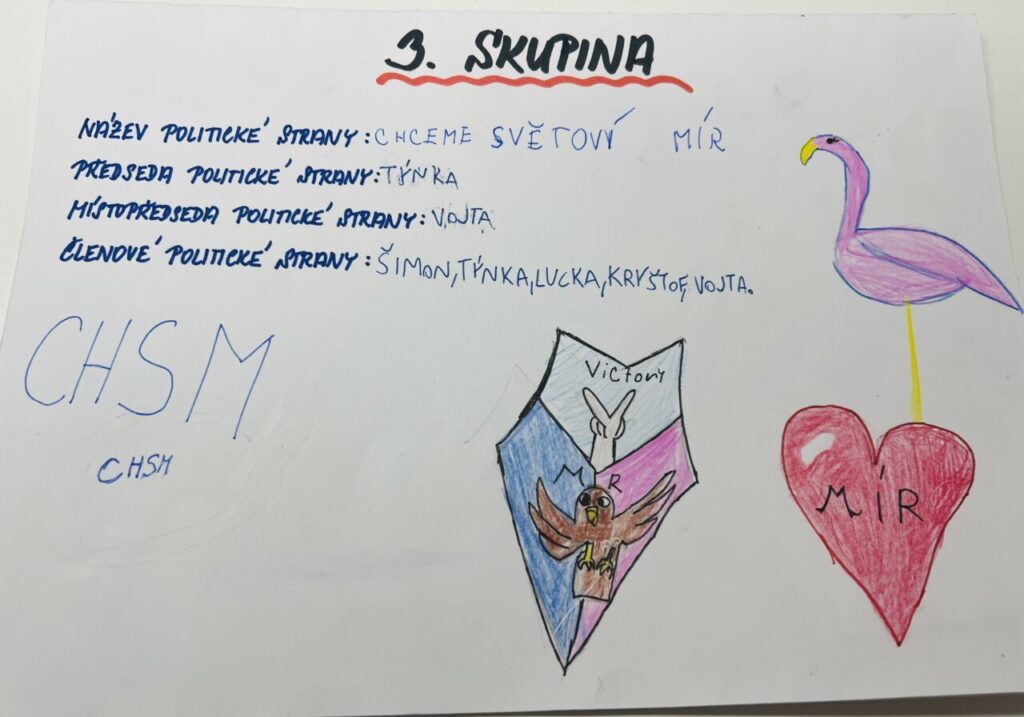 3. SKUPINA
NÁZEV POLITICKÉ STRANY: CHCEME SVĚTOVÍ MÍR
PŘEDSEDA POLITICKÉ STRANY: TÝNKA
MÍSTOPŘEDSEDA POLITICKÉ STRANY: VOJTA
ČLENOVÉ POLITICKÉ STRANY: ŠIMON, TÝNKA, LUCKA, KRYŠTOF, VOJTA.
CHSM
CHSM
Victory
M R
MÍR